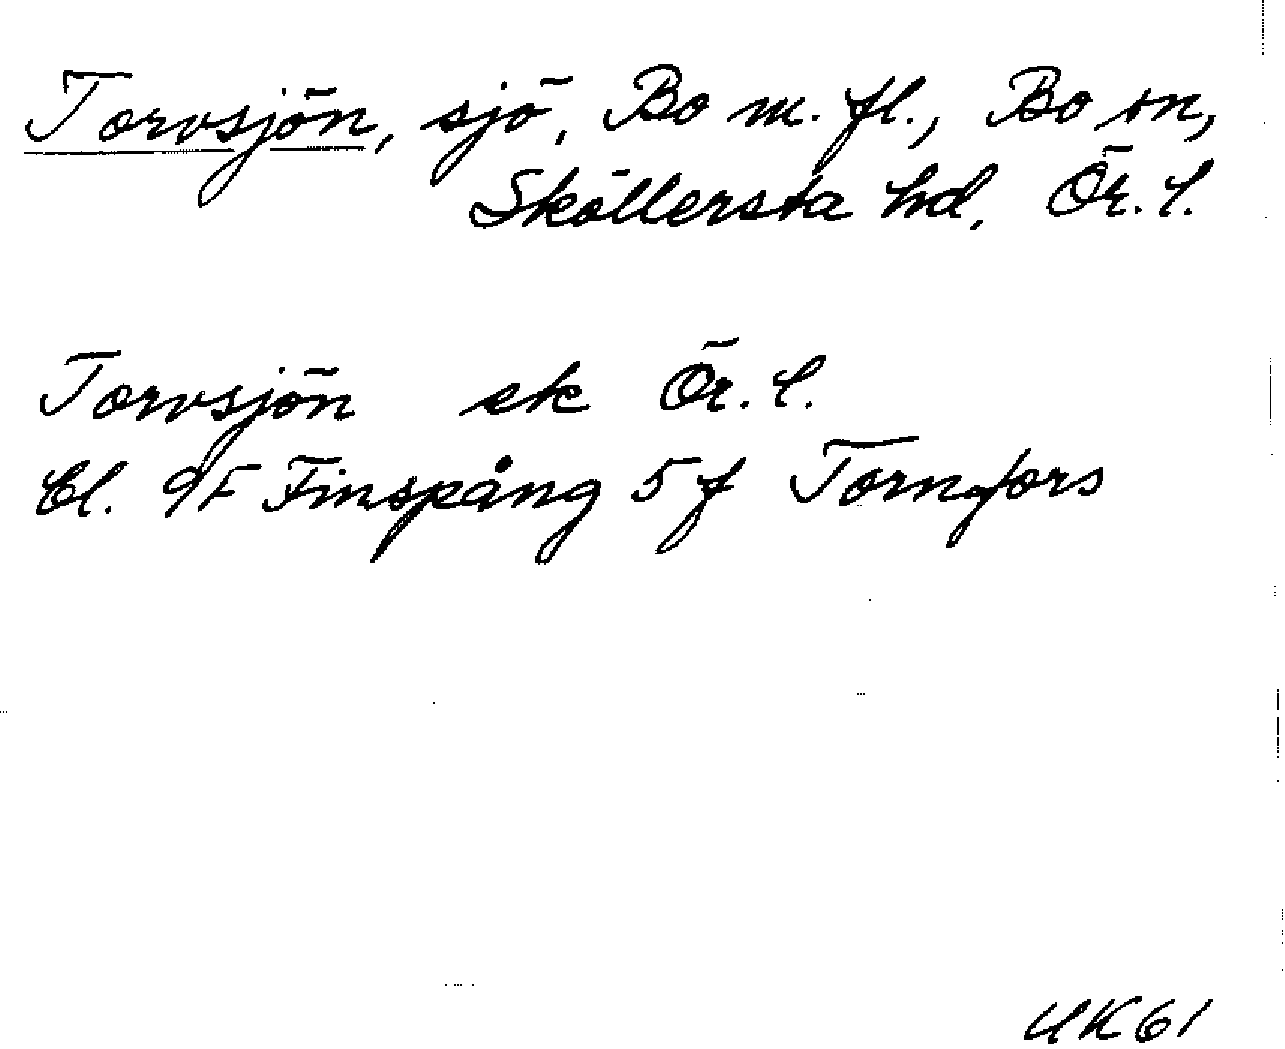 Torvsjön, sjö, Bo m. fl., Bo sn,
Sköllersta hd, Ör. l.
Torvsjön ek Ör. l.
bl. 9F Finspång 5 f Tornfors
UK61